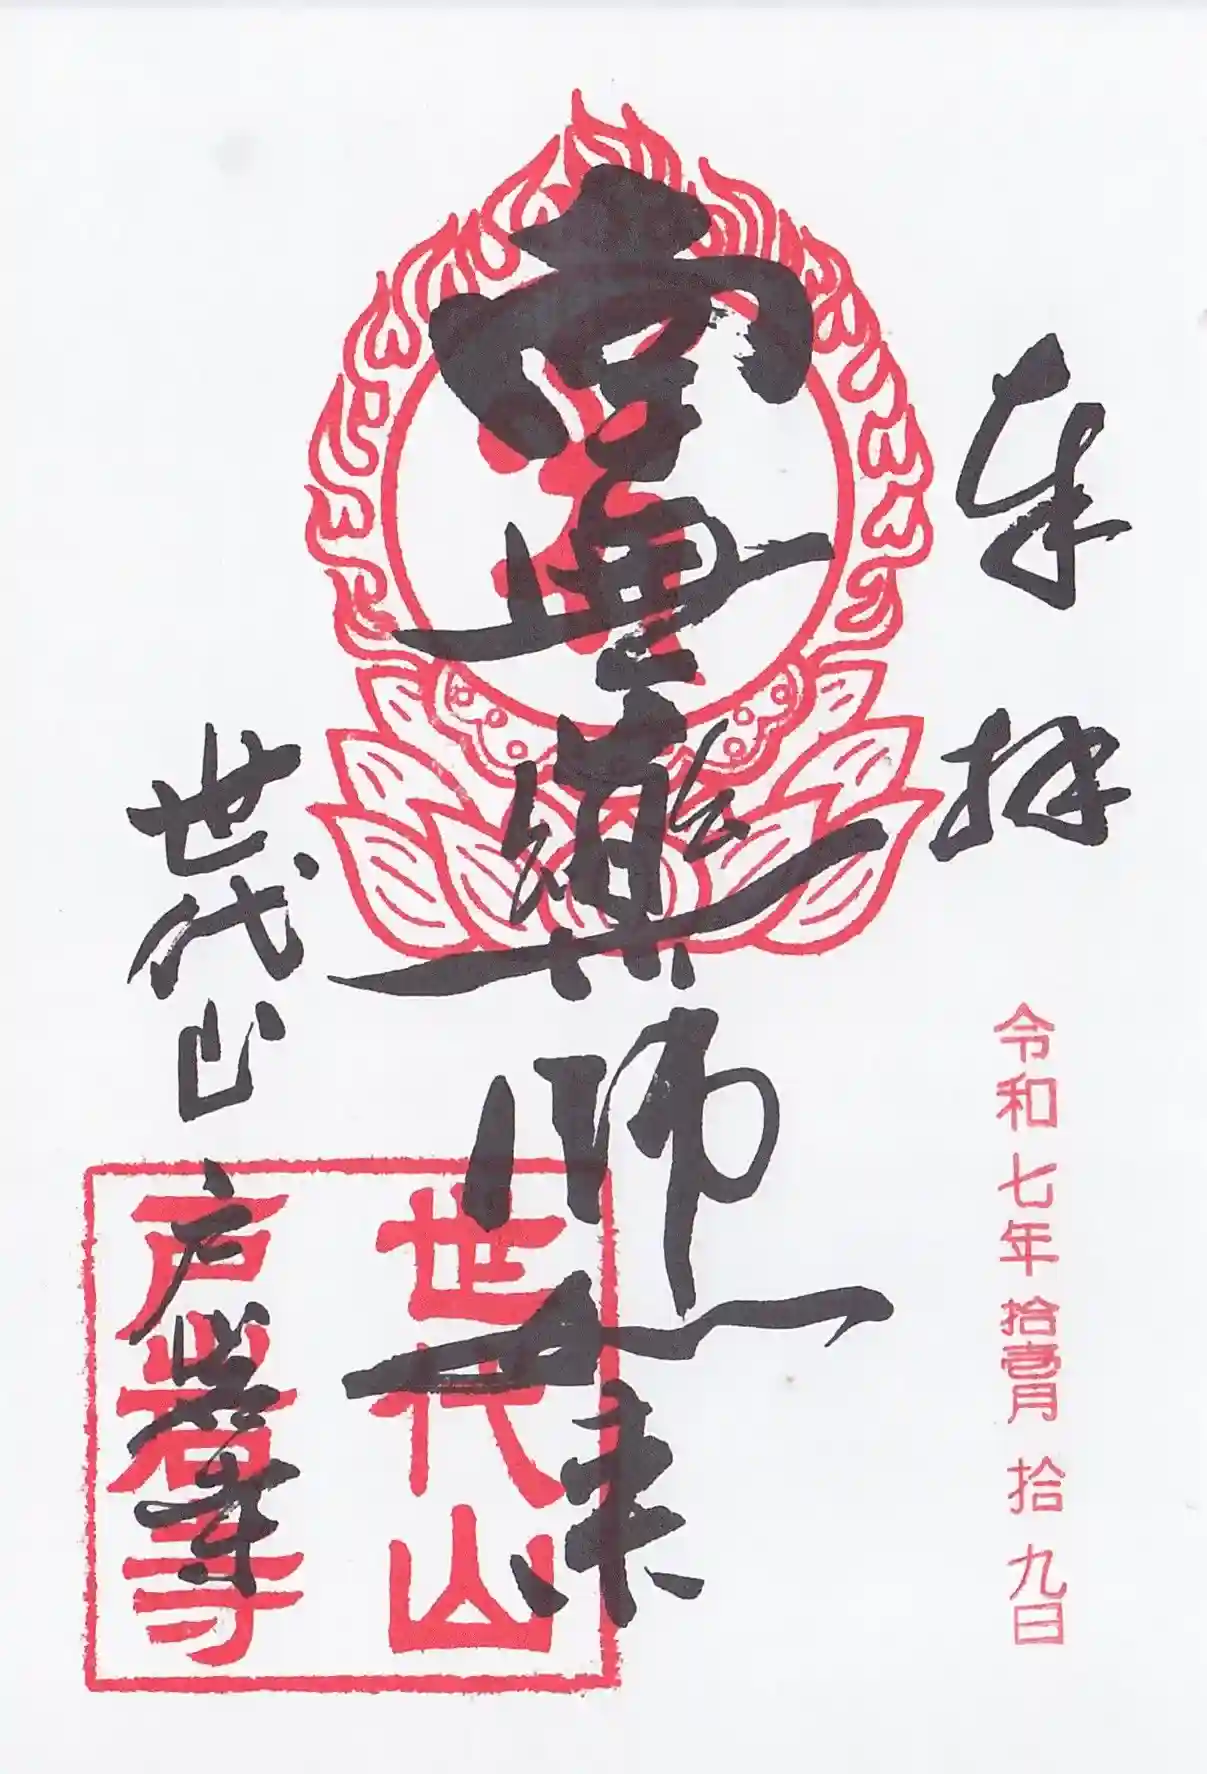 奉拝
令和七年拾壱月拾九日
薬師如来
世代山
戸岩寺
世代山
戸岩寺